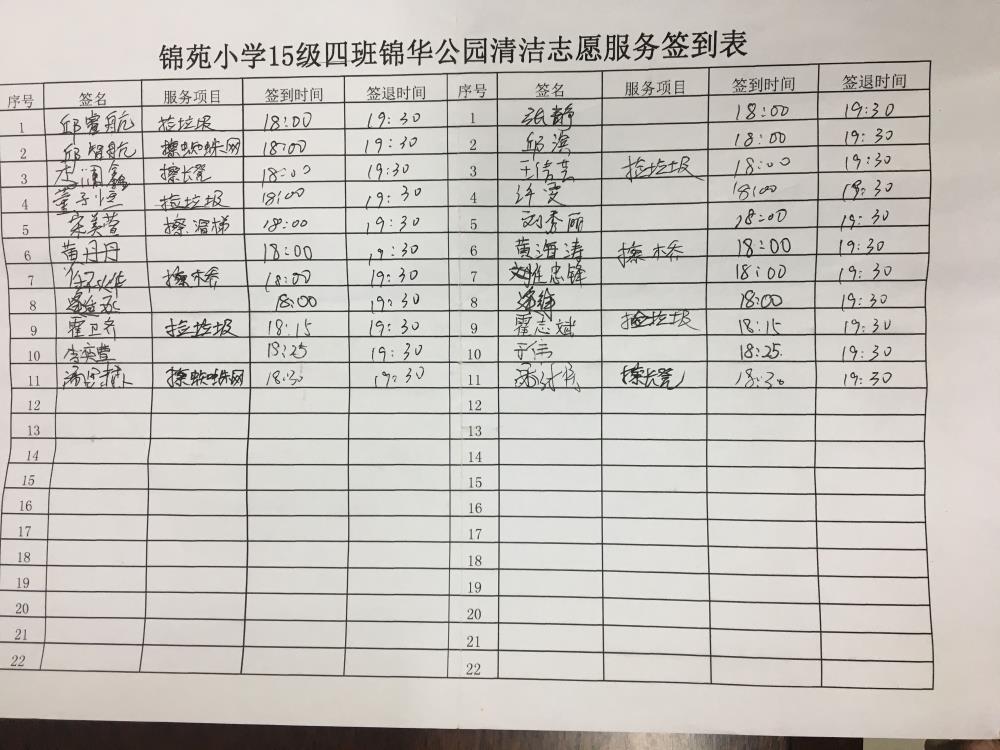 锦苑小学15级四班锦华公园清洁志愿服务签到表
序号 签名 服务项目 签到时间 签退时间 序号 签名 服务项目 签到时间 签退时间
1 邱睿航 捡垃圾 18:00 19:30 1 张静 18:00 19:30
2 邱智航 擦蜘蛛网 18:00 19:30 2 邱滨 18:00 19:30
3 擦长凳 18:00 19:30 3 王倩芸 捡垃圾 18:00 19:30
4 董子恒 捡垃圾 18:00 19:30 4 许雯 18:00 19:30
5 宋美萱 擦滑梯 18:00 19:30 5 刘秀丽 18:00 19:30
6 黄丹丹 18:00 19:30 6 黄海涛 擦木桥 18:00 19:30
7 擦木桥 18:00 19:30 7 18:00 19:30
8 18:00 19:30 8 18:00 19:30
9 霍卫齐 捡垃圾 18:15 19:30 9 霍志斌 捡垃圾 18:15 19:30
10 18:25 19:30 10 于伟 18:25 19:30
11 擦蜘蛛网 18:30 19:30 11 擦长凳 18:30 19:30
12 12
13 13
14 14
15 15
16 16
17 17
18 18
19 19
20 20
21 21
22 22